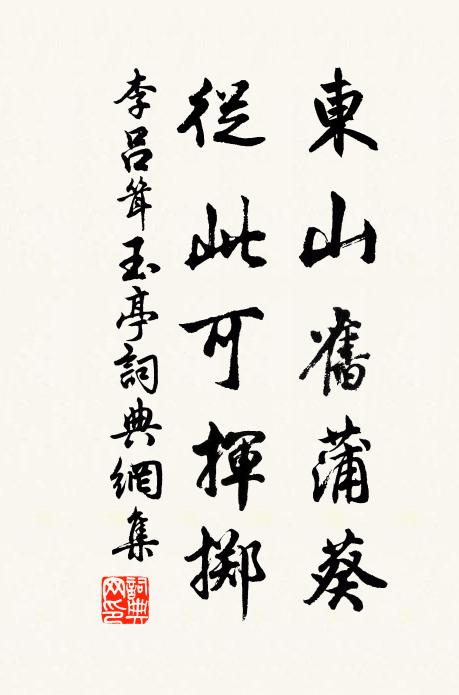 東山舊蒲葵
從此可揮擲
李呂聳玉亭詞典網集
詞典网印